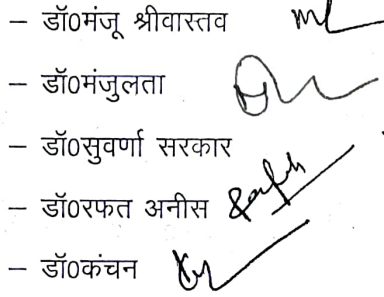 – डॉ0मंजू श्रीवास्तव
– डॉ0मंजुलता
– डॉ0सुवर्णा सरकार
– डॉ0रफत अनीस
– डॉ0कंचन